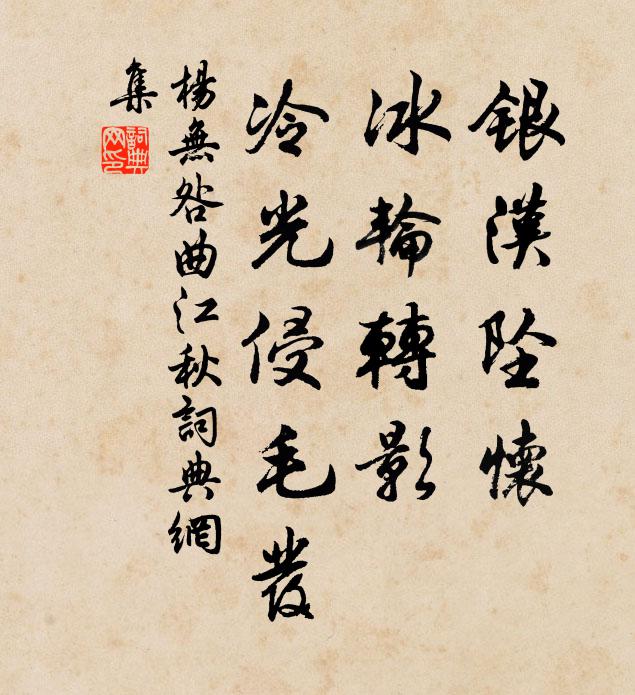 銀漢墜懷
冰輪轉影
冷光侵毛發
楊無咎曲江秋詞典網
集
詞典
網印